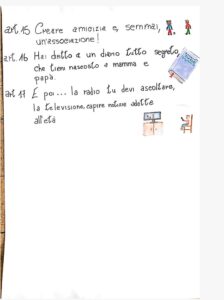 art. 15 Creare amicizia e, semmai,
un'associazione!
art. 16 Hai detto a un diario tutto segreto,
che tieni nascosto a mamma e
papà.
art 17 E poi... la radio tu devi ascoltare,
la televisione, capire notizie adatte
all'età